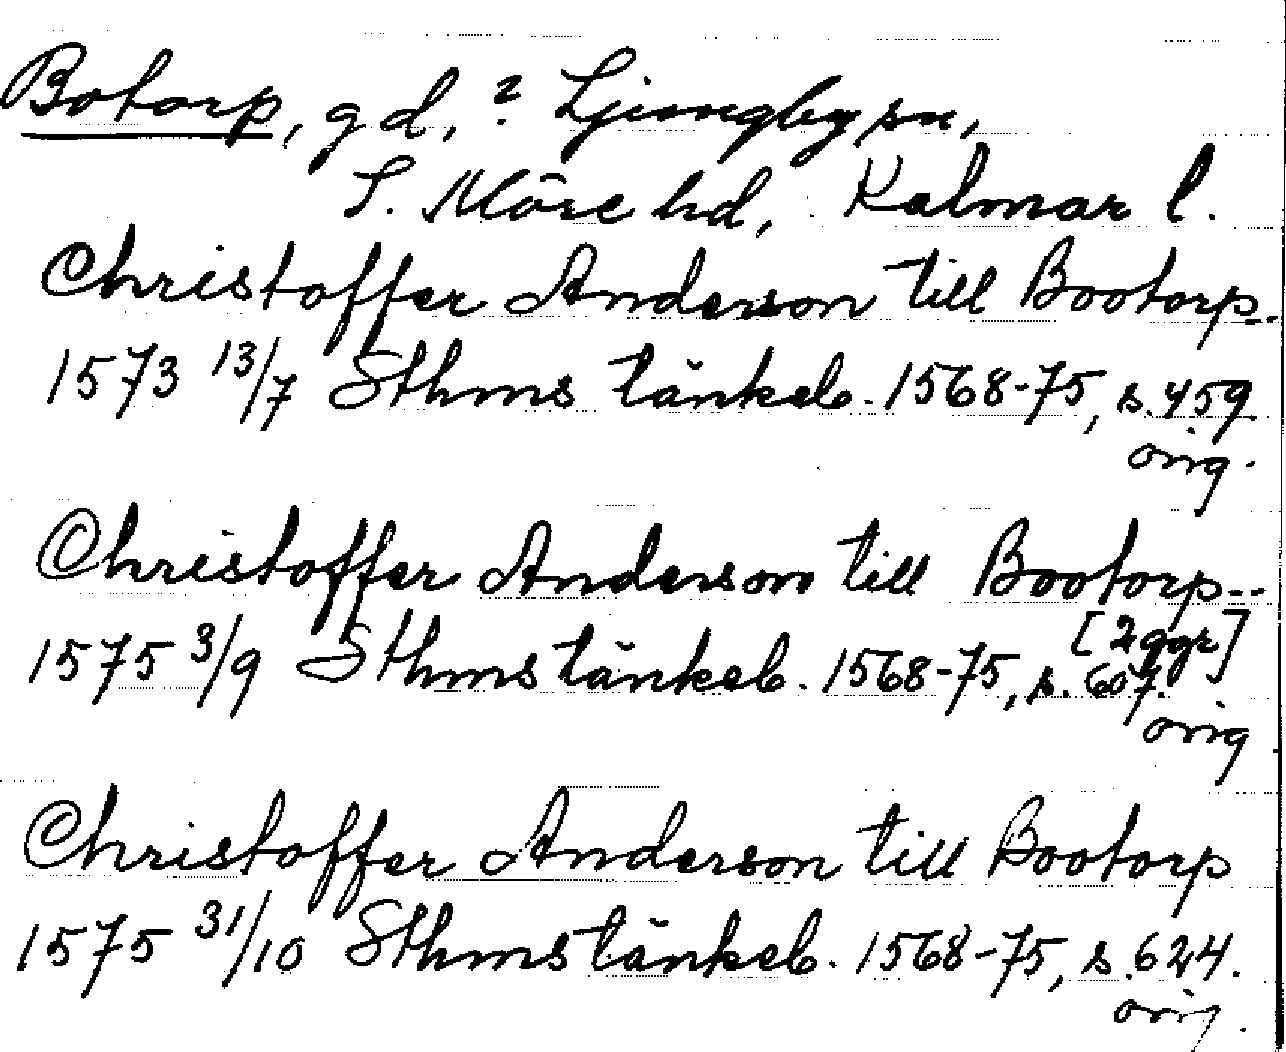 Botorp, gd, ? Ljungby sn,
S. Möre hd, Kalmar l.
Christoffer Anderson till Bootorp.
1573 13/7 Sthms tänkeb. 1568-75, s. 459
orig.
Christoffer Anderson till Bootorp--
[2 ggr]
1575 3/9 Sthms tänkeb. 1568-75, s. 607.
orig
Christoffer Anderson till Bootorp
1575 31/10 Sthms tänkeb. 1568-75, s. 624.
orig.